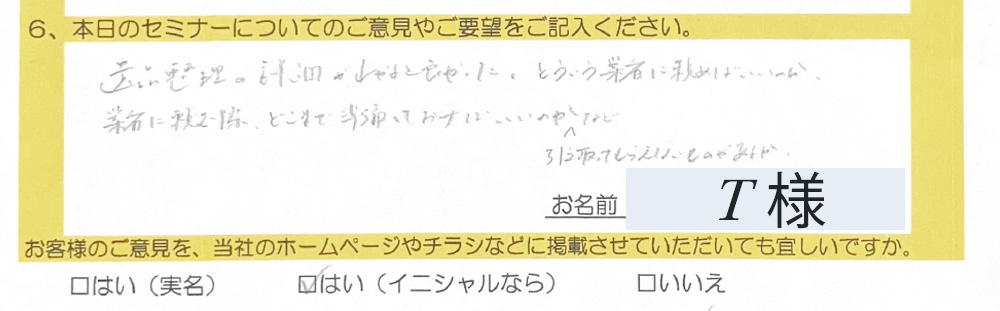 6、本日のセミナーについてのご意見やご要望をご記入ください。
遺品整理の計画がわかると良かった。どういう業者に頼めばいいのか、
業者に頼む際、どこまで準備しておけばいいのかなど
引き取ってもらえないものがあるか。
お名前 T様
お客様のご意見を、当社のホームページやチラシなどに掲載させていただいても宜しいですか。
□はい（実名） ☑はい（イニシャルなら） □いいえ